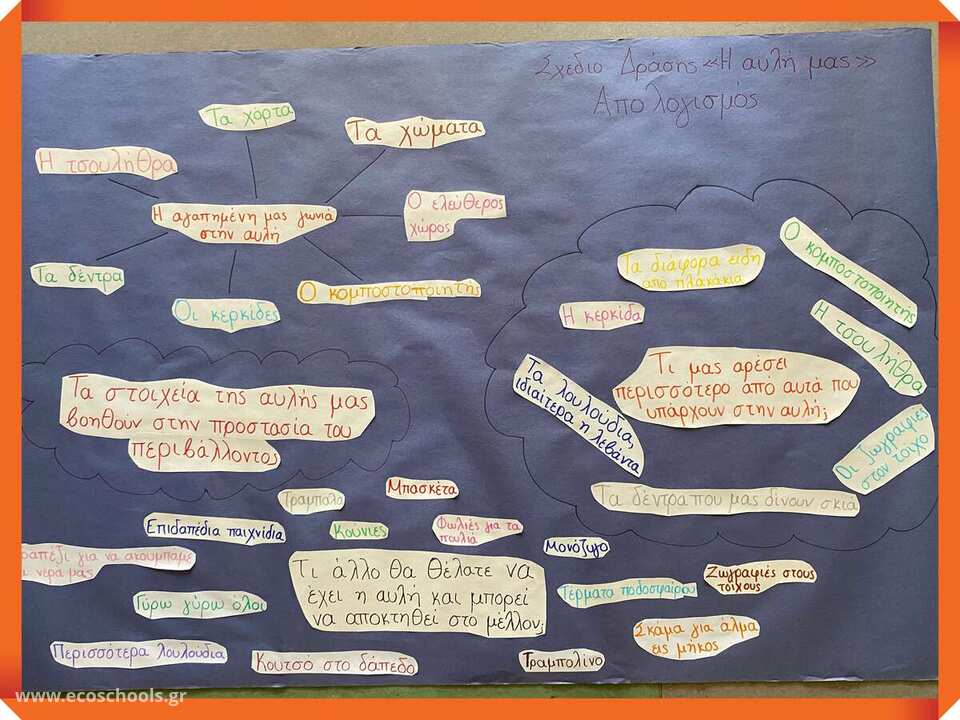 Σχέδιο Δράσης «Η αυλή μας»
Απολογισμός
Τα χόρτα
Τα χώματα
Η τσουλήθρα
Η αγαπημένη μας γωνιά
στην αυλή
Ο ελεύθερος
χώρος
Τα δέντρα
Οι κερκίδες
Ο κομποστοποιητής
Τα στοιχεία της αυλής μας
βοηθούν στην προστασία του
περιβάλλοντος
Τα διάφορα είδη
από πλακάκια
Ο κομποστοποιητής
Η κερκίδα
Η τσουλήθρα
Τι μας αρέσει
περισσότερο από αυτά που
υπάρχουν στην αυλή;
Τα λουλούδια,
ιδιαίτερα η λεβάντα
Οι ζωγραφιές
στον τοίχο
Τα δέντρα που μας δίνουν σκιά
Τραμπάλα
Μπασκέτα
Επιδαπέδια παιχνίδια
Κούνιες
Φωλιές για τα
πουλιά
Μονόζυγο
για να ακουμπάμε
νερά μας
Τι άλλο θα θέλατε να
έχει η αυλή και μπορεί
να αποκτηθεί στο μέλλον;
Τέρματα ποδοσφαίρου
Ζωγραφιές στους
τοίχους
Γύρω γύρω όλοι
Σκάμα για άλμα
εις μήκος
Περισσότερα λουλούδια
Κουτσό στο δάπεδο
Τραμπολίνο
www.ecoschools.gr